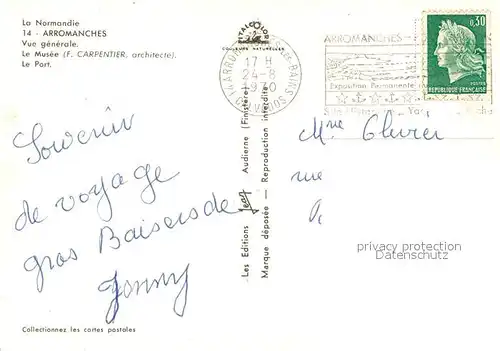 La Normandie
14 - ARROMANCHES
Vue générale.
Le Musée (F. CARPENTIER, architecte).
Le Port.
COULEURS NATURELLES
17 H
24-8
1970
ARROMANCHES
Exposition Permanente
0,30
POSTES
REPUBLIQUE FRANÇAISE
Souvenir
de voyage
gros Baisers de
Jenny
Mme Olivier
rue
Les Editions Jean Audierne (Finistère)
Marque déposée — Reproduction interdite
privacy protection
Datenschutz
Collectionnez les cartes postales